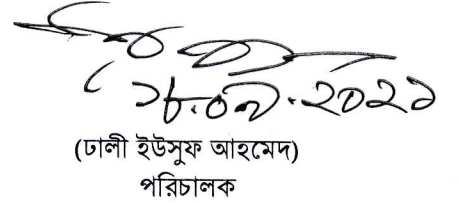 ১৮.০৯.২০২১
(ঢালী ইউসুফ আহমেদ)
পরিচালক